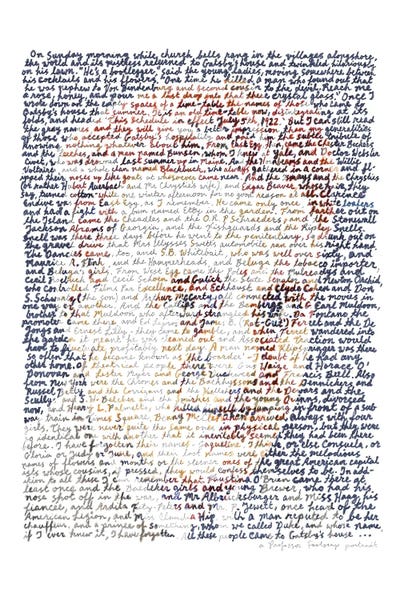 On Sunday morning while church bells rang in the villages alongshore,
the world and its mistress returned to Gatsby's house and twinkled hilariously
on his lawn. "He's a bootlegger," said the young ladies, moving somewhere between
his cocktails and his flowers. "One time he killed a man who found out that
he was nephew to Von Hindenburg and second cousin to the devil. Reach me
a rose, honey, and pour me a last drop into that there crystal glass." Once I
wrote down on the empty spaces of a time-table the names of those who came to
Gatsby's house that summer. It is an old time-table now, disintegrating at its
folds, and headed "This schedule in effect July 5th, 1922." But I can still read
the gray names and they will give you a better impression than my generalities
of those who accepted Gatsby's hospitality and paid him the subtle tribute of
knowing nothing whatever about him. From East Egg, then, came the Chester Beckers
and the Leeches, and a man named Bunsen, whom I knew at Yale, and Doctor Webster
Civet, who was drowned last summer up in Maine. And the Hornbeams and the Willie
Voltaires, and a whole clan named Blackbuck, who always gathered in a corner and fl-
ipped their noses up like goats at whosoever came near. And the Ismays and the Chrysties
(or rather Hubert Auerbach and Mr Chrystie's wife), and Edgar Beaver, whose hair, they
say, turned cotton-white one winter afternoon for no good reason at all. Clarence
Endive was from East Egg, as I remember. He came only once, in white knickerbockers,
and had a fight with a bum named Etty in the garden. From farther out on
the Island came the Cheadles and the O.R.P. Schraeders, and the Stonewall
Jackson Abrams of Georgia, and the Fishguards and the Ripley Snells.
Snell was there three days before he went to the penitentiary, so drunk out on
the gravel drive that Mrs Ulysses Swett's automobile ran over his right hand.
The Dancies came, too, and S.B. Whitebait, who was well over sixty, and
Maurice A. Flink, and the Hammerheads, and Beluga the tobacco importer,
and Beluga's girls. From West Egg came the Poles and the Mulreadys and
Cecil Roebuck and Cecil Schoen and Gulick the State senator and Newton Orchid,
who controlled Films Par Excellence, and Eckhaust and Clyde Cohen and Don
S. Schwartze (the son) and Arthur McCarty, all connected with the movies in
one way or another. And the Catlips and the Bembergs and G. Earl Muldoon,
brother to that Muldoon who afterward strangled his wife. Da Fontano the
promoter came there, and Ed Legros and James B. (Rot-Gut) Ferret and the De
Jongs and Ernest Lilly — they came to gamble, and when Ferret wandered into
the garden it meant he was cleaned out and Associated Traction would
have to fluctuate profitably next day. A man named Klipspringer was there
so often that he became known as 'the boarder' — I doubt if he had any
other home. Of theatrical people there were Gus Waize and Horace O'
Donavan and Lester Myer and George Duckweed and Francis Bull. Also
from New York were the Chromes and the Backhyssons and the Dennickers and
Russel Betty and the Corrigans and the Kellehers and the Dewars and the
Scullys and S.W. Belcher and the Smirkes and the young Quinns, divorced
now, and Henry L. Palmetto, who killed himself by jumping in front of a sub-
way train in Times Square. Benny McClenahan arrived always with four
girls. They were never quite the same ones in physical person, but they were
so identical one with another that it inevitably seemed they had been there
before. I have forgotten their names — Jaqueline, I think, or else Consuela, or
Gloria or Judy or June, and their last names were either the melodious
names of flowers and months or the sterner ones of the great American capital
ists whose cousins, if pressed, they would confess themselves to be. In add-
ition to all these I can remember that Faustina O'Brien came there at
least once and the Baedeker girls and young Brewer, who had his
nose shot off in the war, and Mr Albrucksburger and Miss Haag, his
fiancée, and Ardita Fitz-Peters and Mr P. Jewett, once head of the
American Legion, and Miss Claudia Hip, with a man reputed to be her
chauffeur, and a prince of something, whom we called Duke, and whose name,
if I ever knew it, I have forgotten. All these people came to Gatsby's house ...
a Professor Foolscap portrait